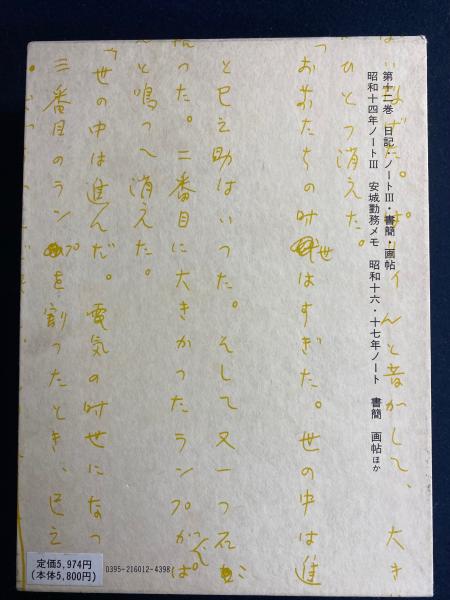 第十二巻　日記・ノートⅢ・書簡・画帖
昭和十四年ノートⅢ　安城勤務メモ　昭和十六・十七年ノート　書簡　画帖ほか
はずだ。ぱりィんと音がして、大き
ひとつ消えた。
「お前たちの時世はすぎた。世の中は進
と巳之助はいった。そして又一つ石
った。二番目に大きかったランプがぱ
んと鳴って消えた。
「世の中は進んだ。電気の時世になっ
三番目のランプを割ったとき、巳之
定価5,974円
(本体5,800円)
0395-216012-4398